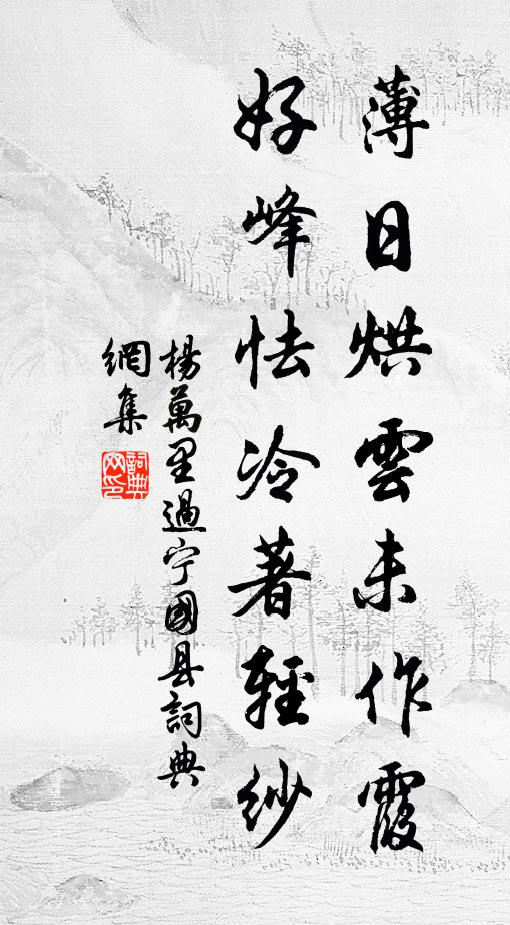 薄日烘雲未作霞
好峰怯冷著輕紗
楊萬里過宁國县詞典
網集
詞典
网印